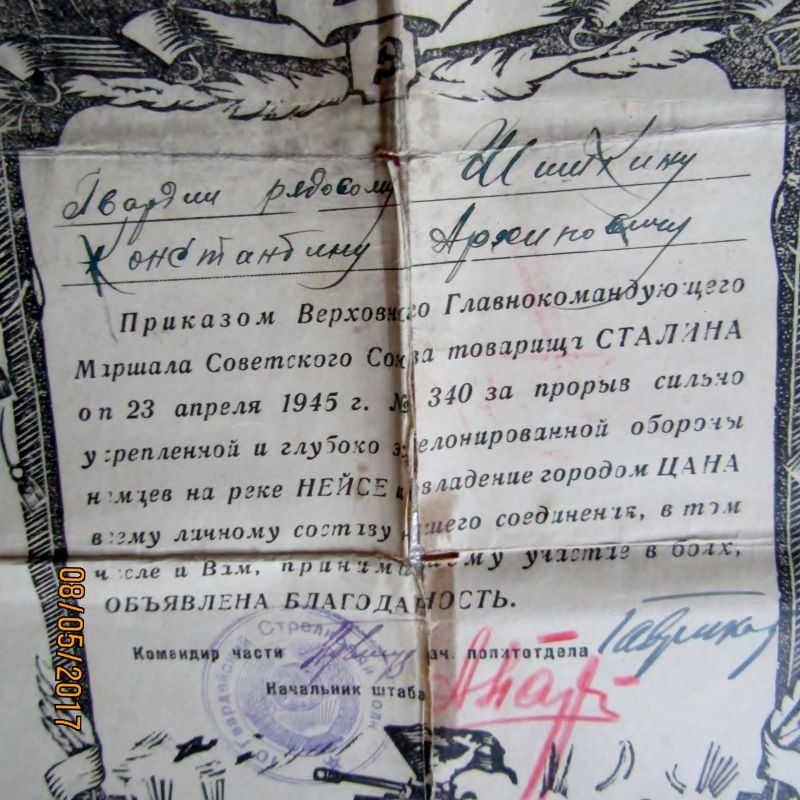 Гвардии рядовому Шишкину
Константину Архиповичу
Приказом Верховного Главнокомандующего
Маршала Советского Союза товарища СТАЛИНА
от 23 апреля 1945 г. № 340 за прорыв сильно
укрепленной и глубоко эшелонированной обороны
немцев на реке НЕЙСЕ и овладение городом ЦАНА
всему личному составу нашего соединения, в том
числе и Вам, принимавшему участие в боях,
ОБЪЯВЛЕНА БЛАГОДАРНОСТЬ.
Командир части нач. политотдела
Начальник штаба
Гвардейской Стрелковой
08/05/2017